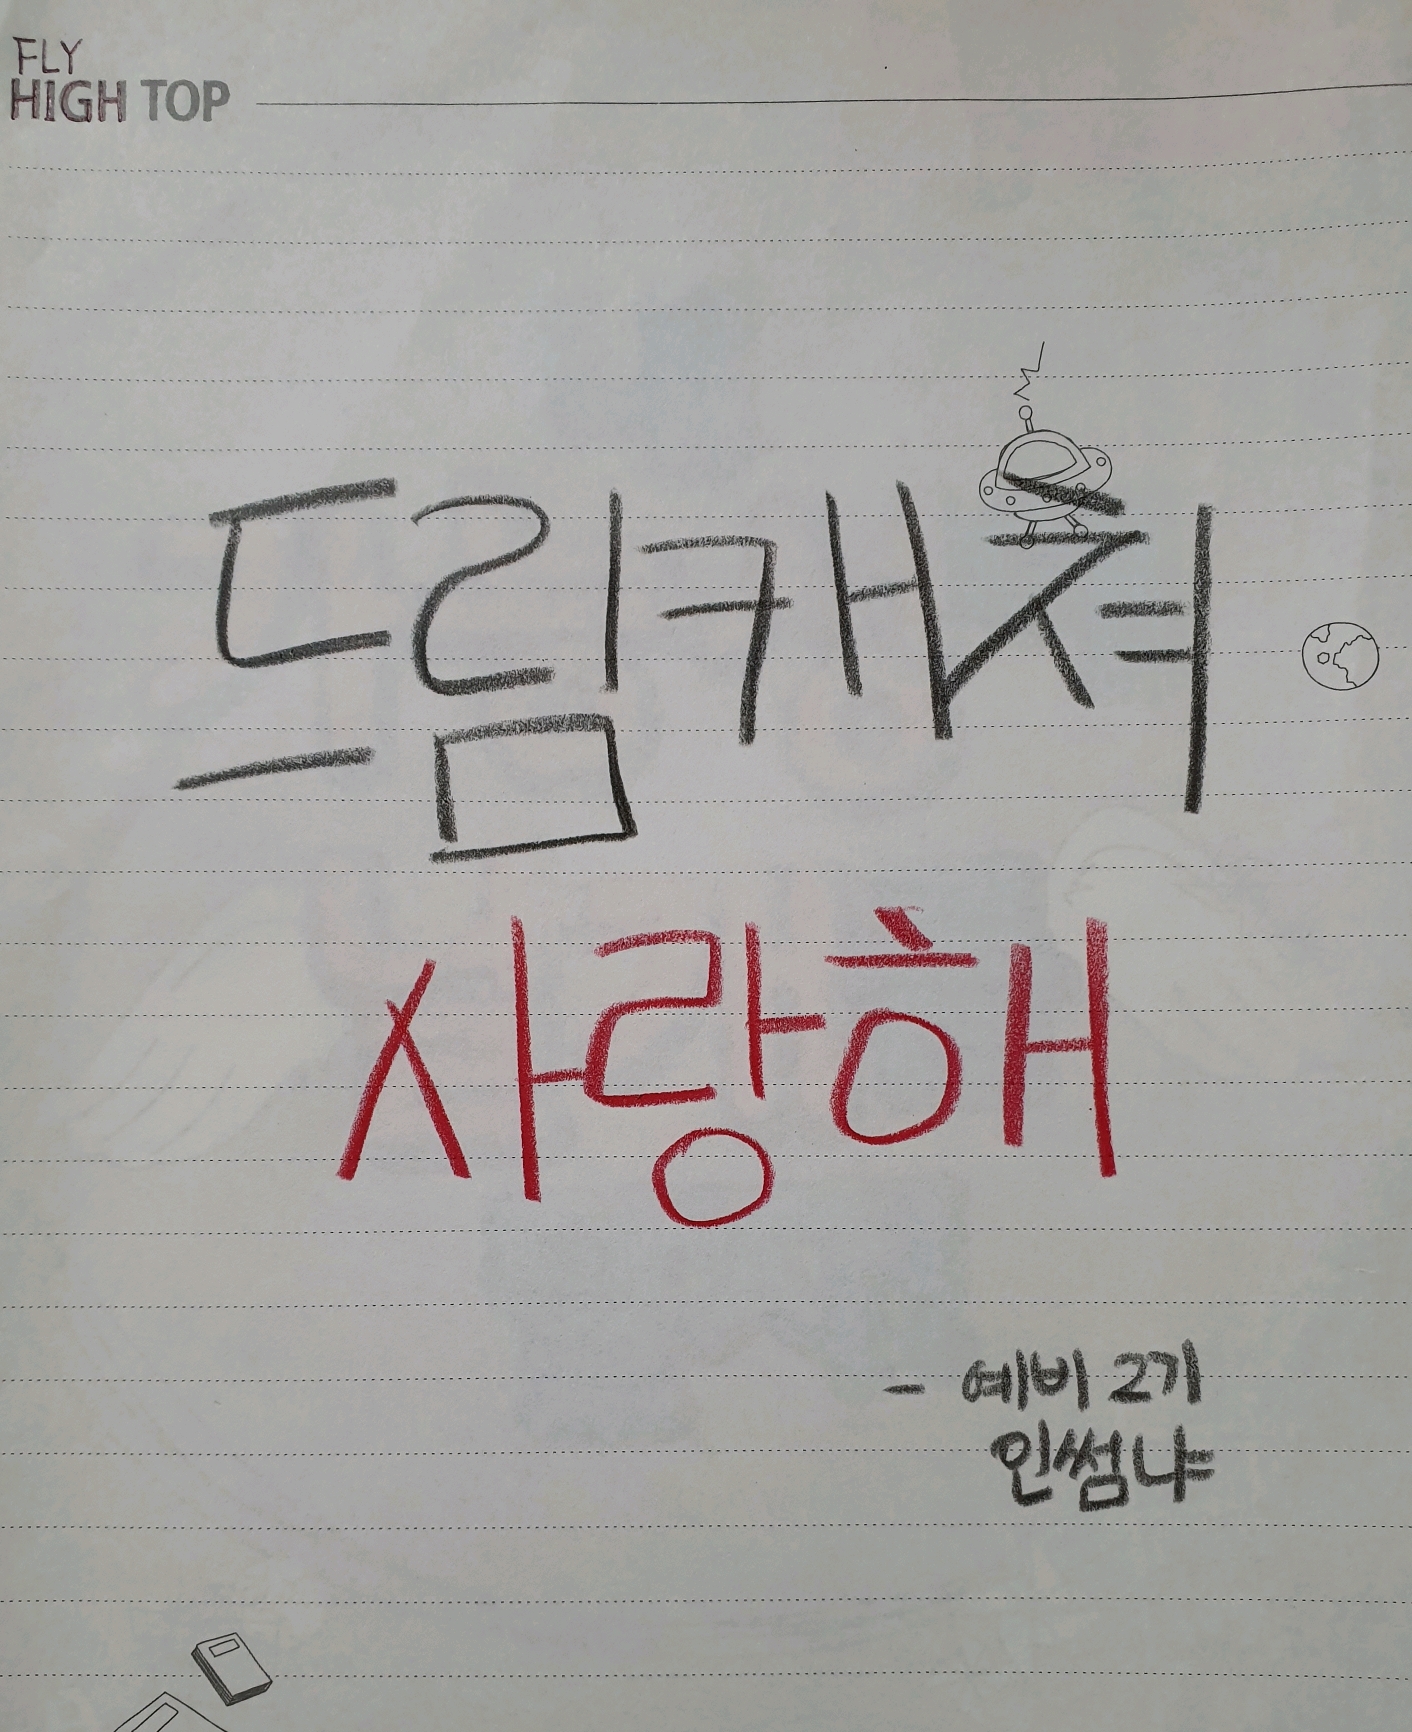 FLY
HIGH TOP
드림캐쳐
사랑해
- 예비 2기
인썸냐